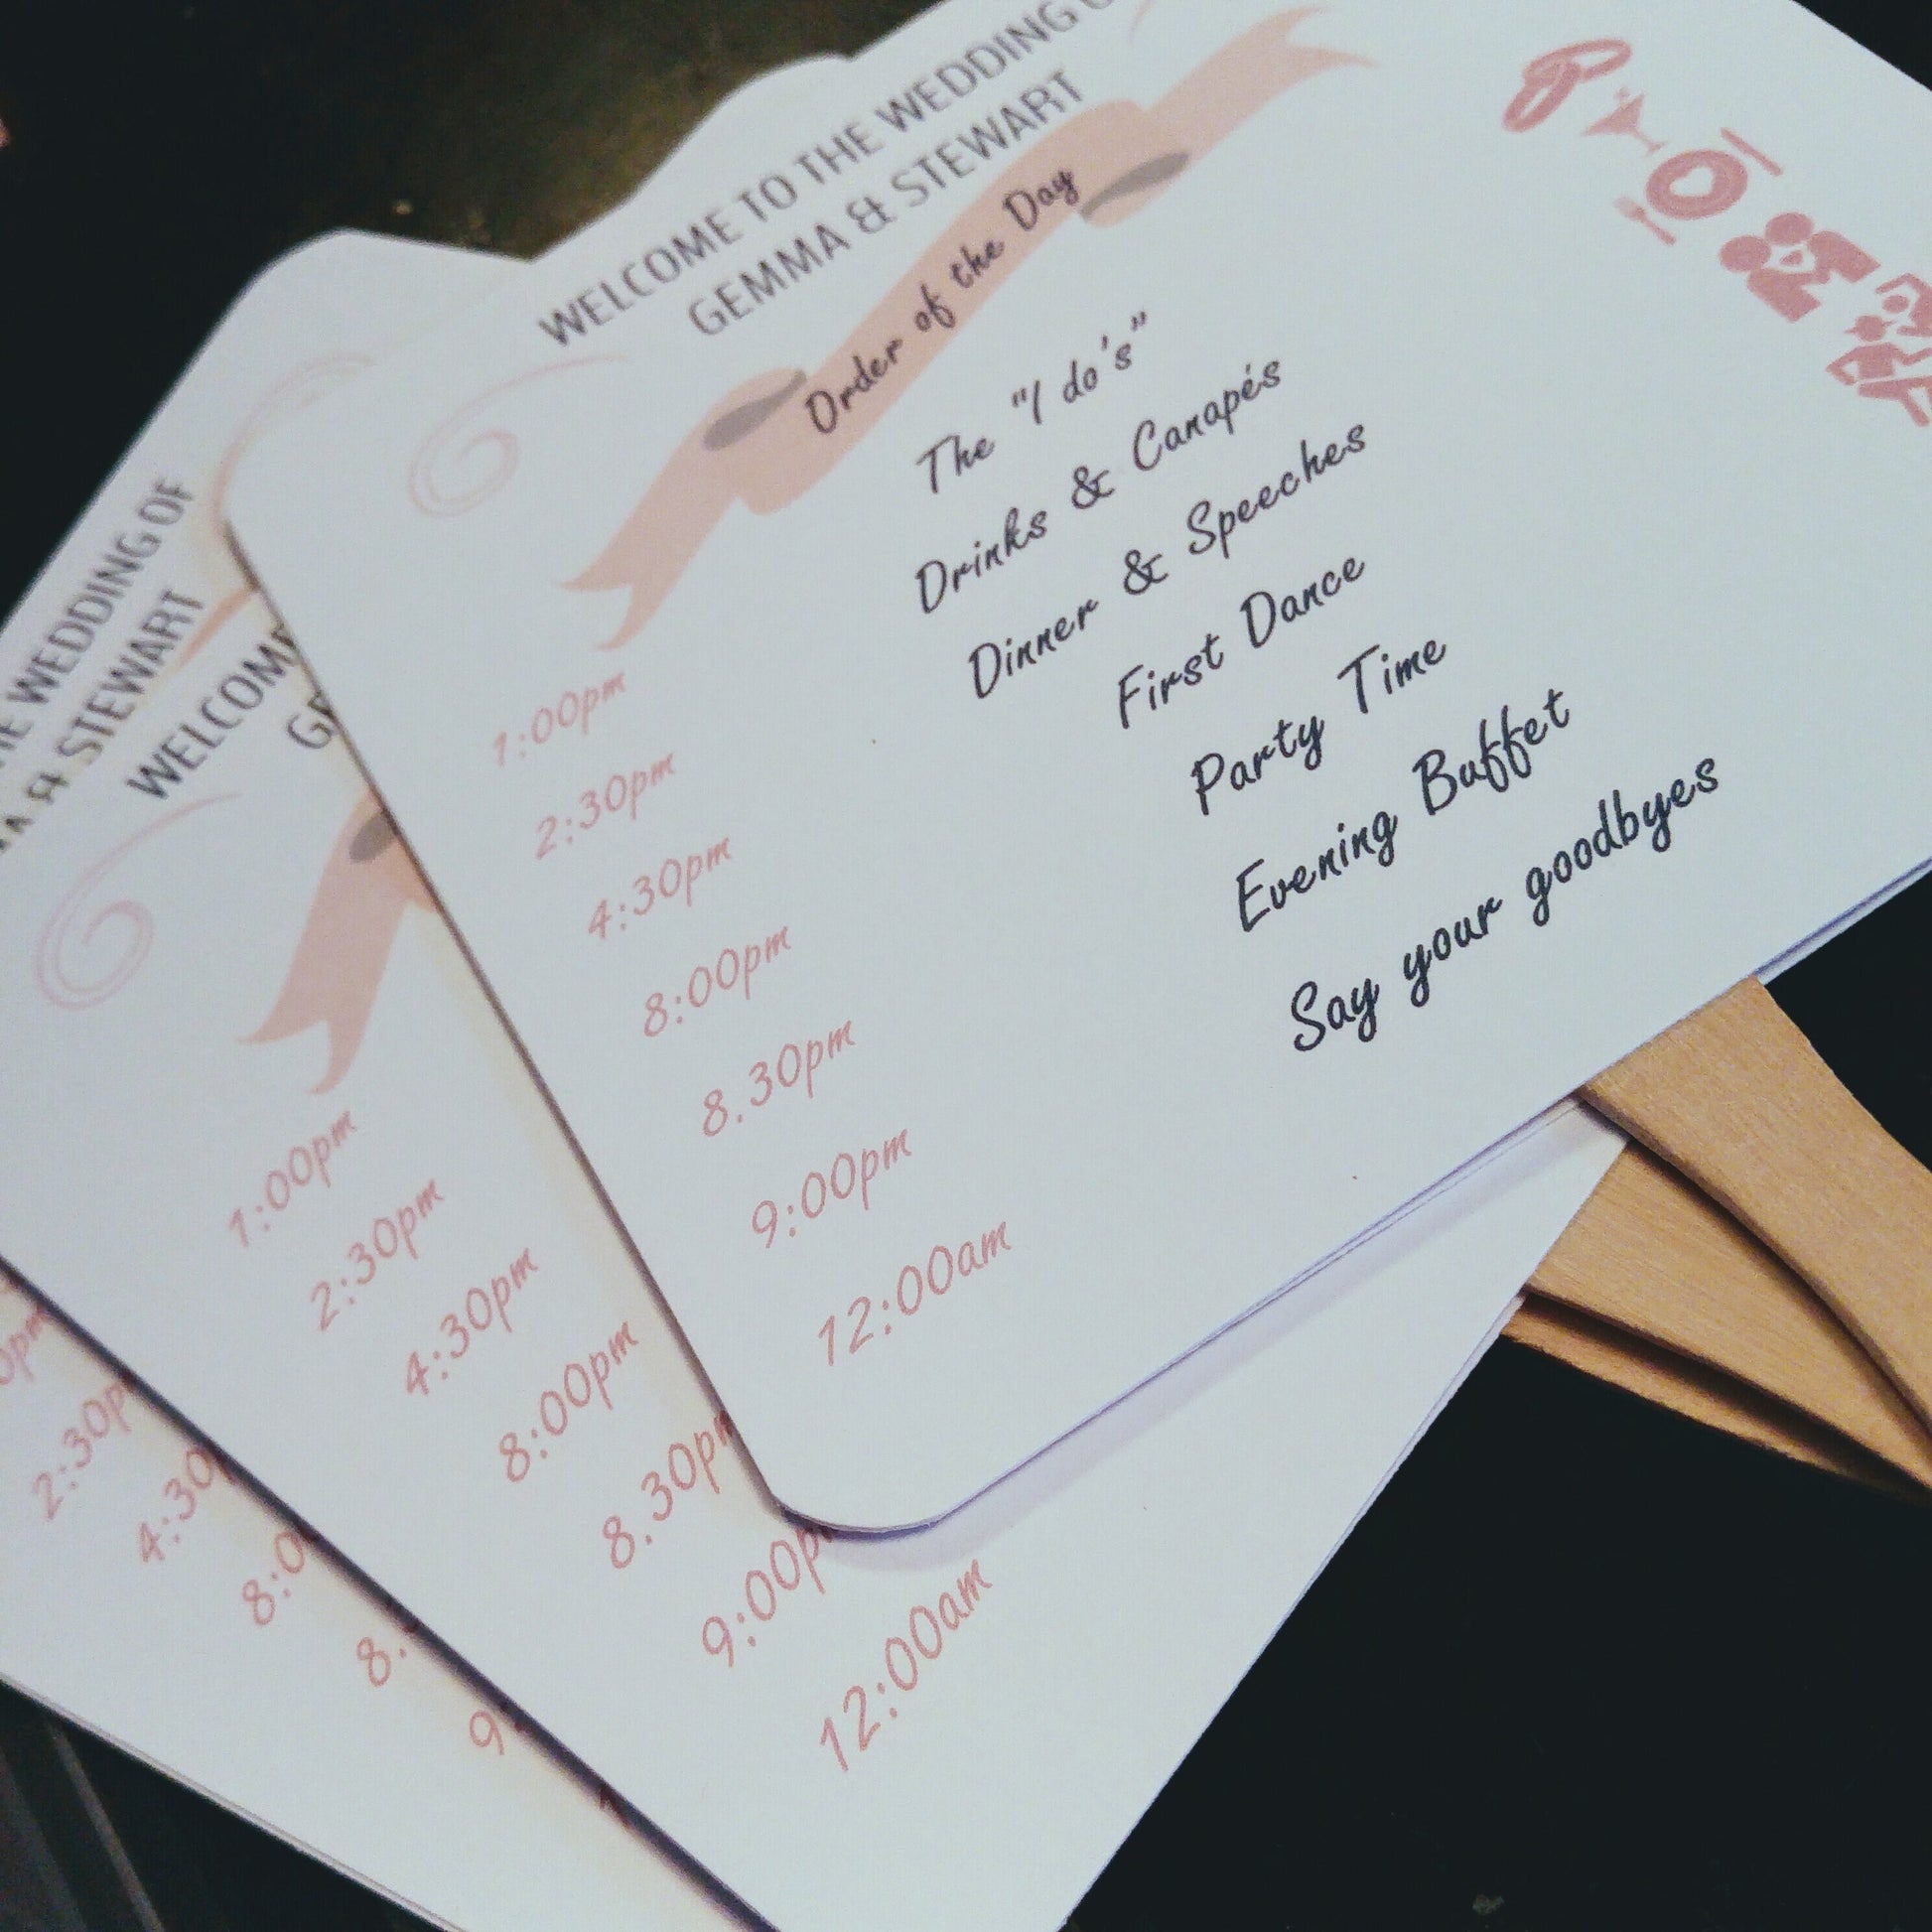 WELCOME TO THE WEDDING
GEMMA & STEWART
Order of the Day
1:00pm The "I do's"
2:30pm Drinks & Canapés
4:30pm Dinner & Speeches
8:00pm First Dance
8.30pm Party Time
9:00pm Evening Buffet
12:00am Say your goodbyes
WELCOME
1:00pm
2:30pm
4:30pm
8:00pm
8.30pm
9:00pm
12:00am
WEDDING OF
& STEWART
2:30p
4:30
8:0
8.
9